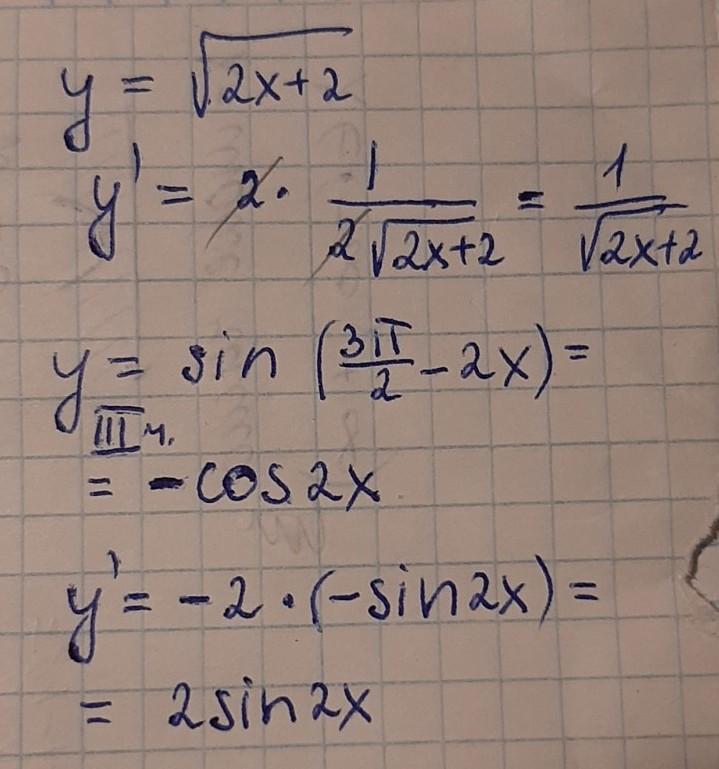 y = √(2x+2)
y' = 2 · 1/(2√(2x+2)) = 1/√(2x+2)
y = sin (3π/2 - 2x) =
III ч.
= -cos 2x
y' = -2 · (-sin2x) =
= 2sin2x